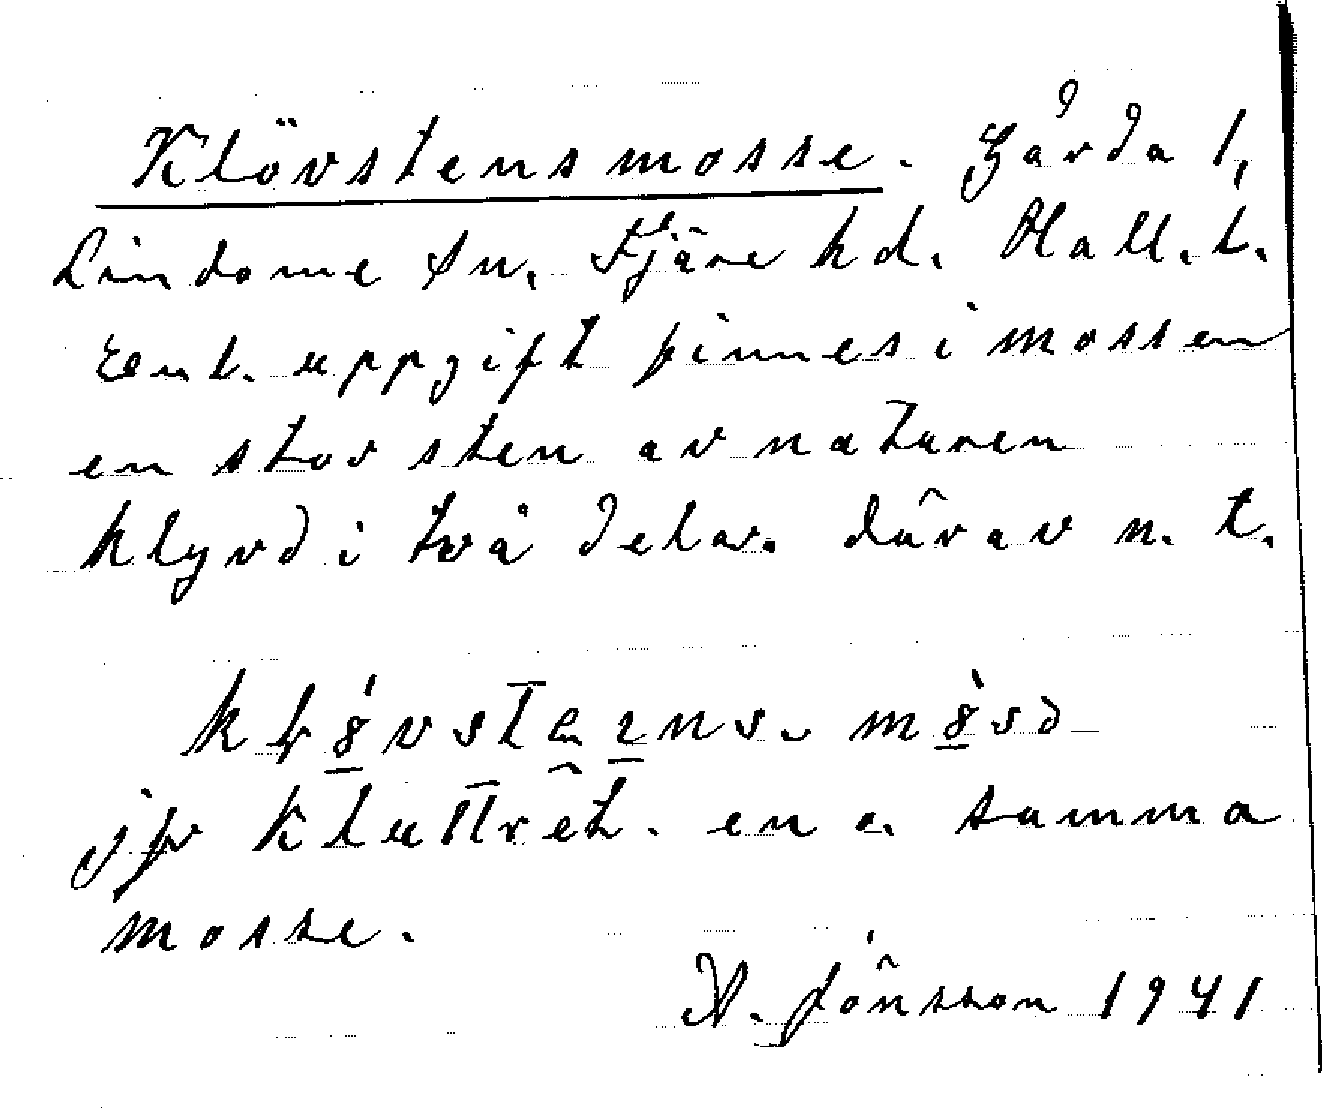 Klövstensmosse. Gårda 1,
Lindome sn. Fjäre hd. Hall.l.
Enl. uppgift finnes i mossen
en stor sten av naturen
klyvd i två delar. därav n. t.
mosse.
jfr Kluttret. en o. samma
N. Jönsson 1941